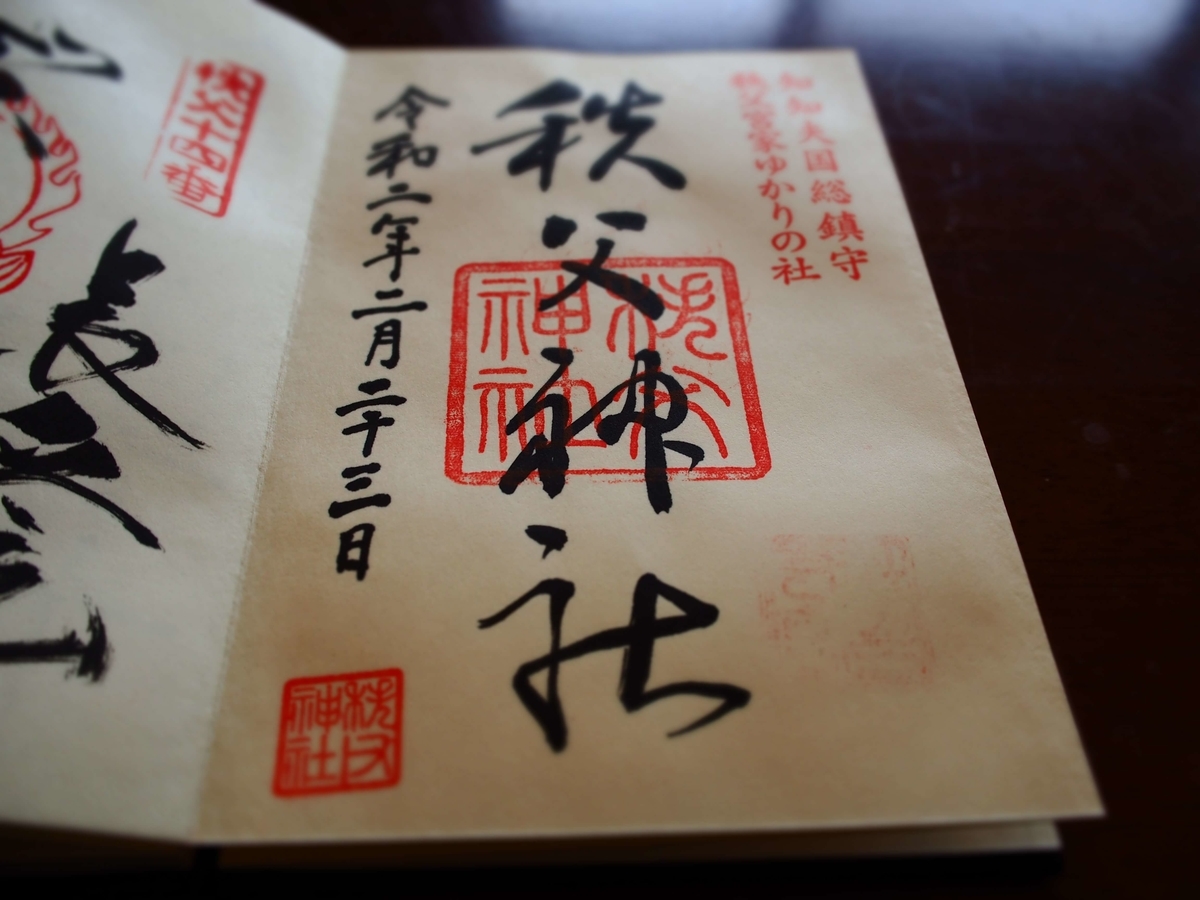 知知夫国総鎮守
秩父宮家ゆかりの社
秩父神社
秩父神社
令和二年二月二十三日
秩父神社
秩父十四番